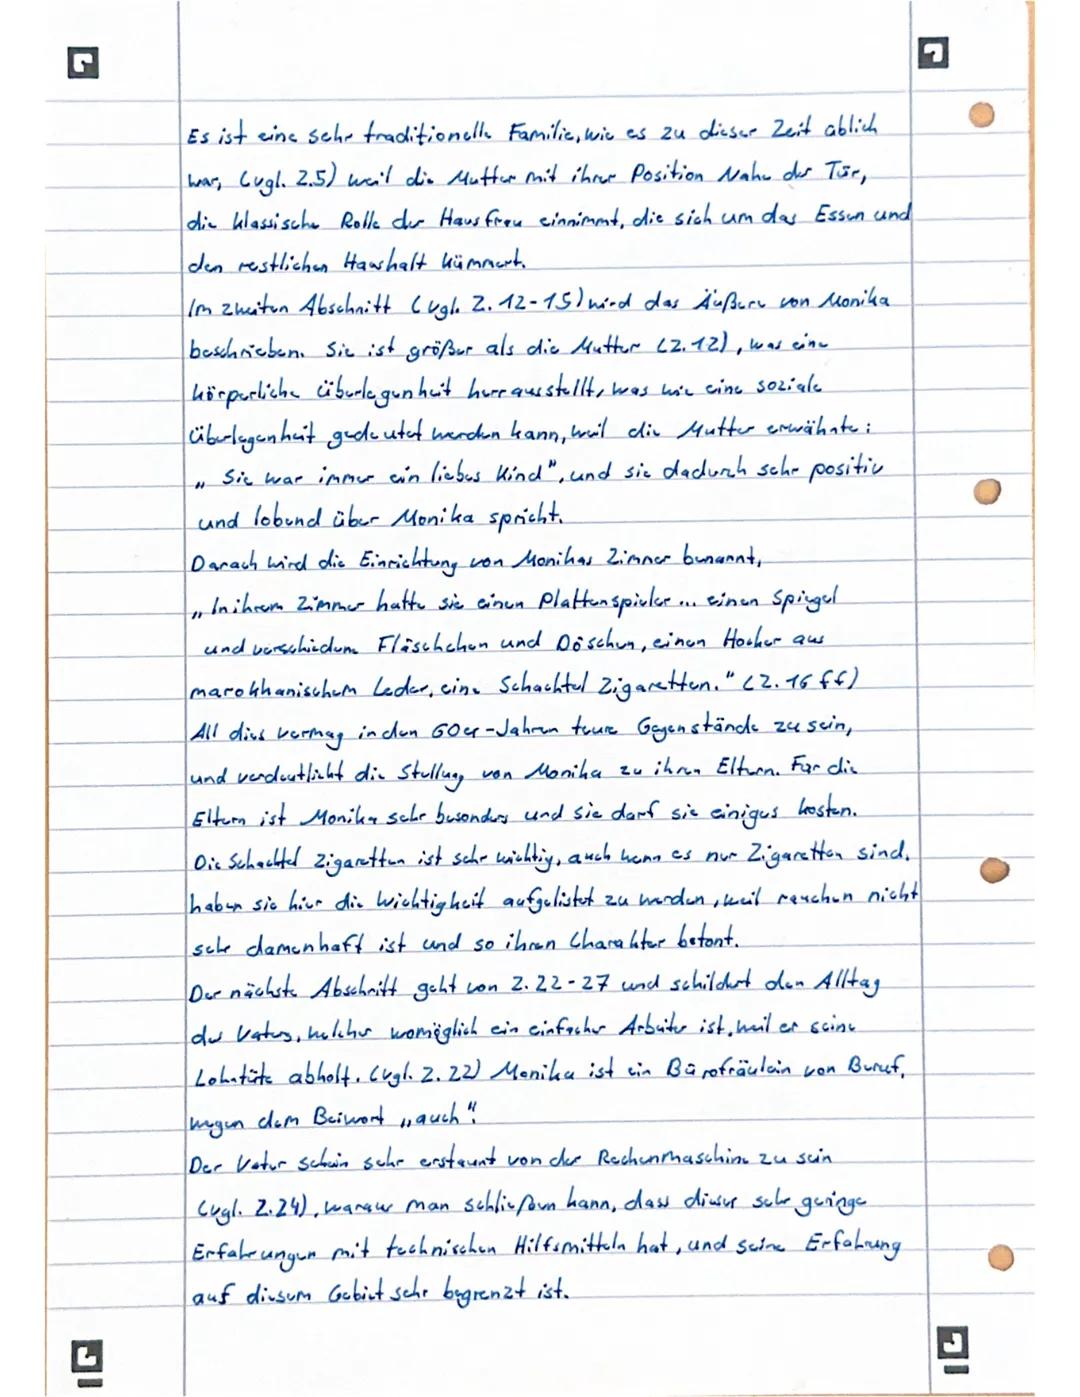 Es ist eine sehr traditionelle Familie, wie es zu dieser Zeit ablich
war, (vgl. Z.5) weil die Mutter mit ihrer Position Nahe der Tür,
die klassische Rolle der Hausfrau einnimmt, die sich um das Essen und
den restlichen Haushalt kümmert.
Im zweiten Abschnitt (vgl. Z. 12-15) wird das Äußere von Monika
beschrieben. Sie ist größer als die Mutter (Z. 12), was eine
körperliche Überlegenheit herrausstellt, was wie eine soziale
Überlegenheit gedeutet werden kann, weil die Mutter erwähnte:
„Sie war immer ein liebes Kind", und sie dadurch sehr positiv
und lobend über Monika spricht.
Darach wird die Einrichtung von Monikas Zimmer benannt,
„In ihrem Zimmer hatte sie einen Plattenspieler ... einen Spiegel
und verschiedene Fläschchen und Döschen, einen Hocker aus
marokkanischem Leder, eine Schachtel Zigaretten." (Z. 16 ff)
All dies vermag in den 60er-Jahren teure Gegenstände zu sein,
und verdeutlicht die Stellung von Monika zu ihren Eltern. Für die
Eltern ist Monika sehr besonders und sie darf sie einiges kosten.
Die Schachtel Zigaretten ist sehr wichtig, auch wenn es nur Zigaretten sind,
haben sie hier die Wichtigkeit aufgelistet zu werden, weil rauchen nicht
sehr damenhaft ist und so ihren Charakter betont.
Der nächste Abschnitt geht von Z. 22-27 und schildert den Alltag
des Vaters, welcher womöglich ein einfacher Arbeiter ist, weil er seine
Lohntüte abholt. (vgl. Z. 22) Monika ist ein Bürofräulein von Beruf,
wegen dem Beiwort „auch".
Der Vater schein sehr erstaunt von der Rechenmaschine zu sein
(vgl. Z.24), waraus man schließen kann, dass dieser sehr geringe
Erfahrungen mit technischen Hilfsmitteln hat, und seine Erfahrung
auf diesem Gebiet sehr begrenzt ist.